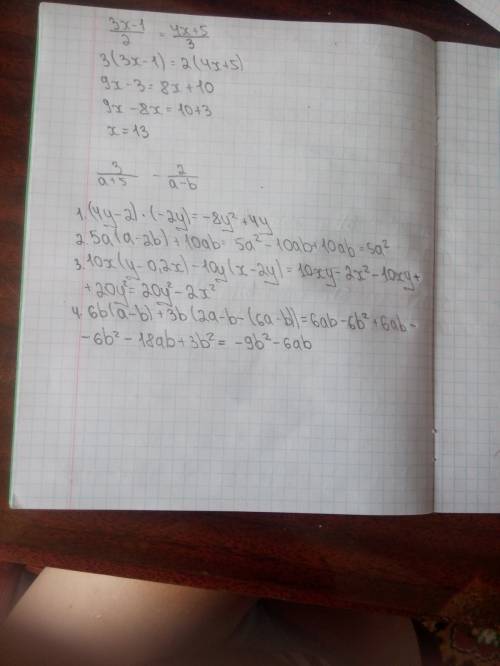 (3x-1)/2 = (4x+5)/3
3(3x-1)=2(4x+5)
9x-3=8x+10
9x-8x=10+3
x=13
3/(a+5) - 2/(a-b)
1.(4y-2)·(-2y)=-8y²+4y
2.5a(a-2b)+10ab=5a²-10ab+10ab=5a²
3.10x(y-0,2x)-10y(x-2y)=10xy-2x²-10xy+
+20y²=20y²-2x²
4.6b(a-b)+3b(2a-b-(6a-b)=6ab-6b²+6ab-
-6b²-18ab+3b²=-9b²-6ab